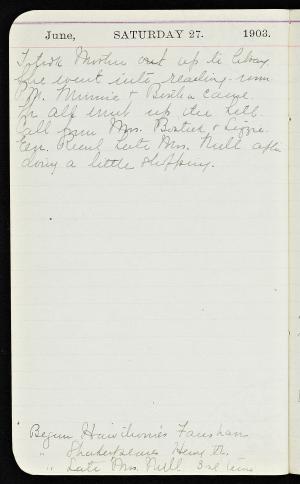 June, SATURDAY 27. 1903.
I took Mother out up to Library
She went into reading room
Mr. Minnie & Bertha came
for all went up the hill.
Call from Mrs. Bostick & Lizzie.
Eve. Read Late Mrs. Null after
doing a little shopping.
Begun Hawthorne's Fanshaw
" Shakespeare's Henry
" Late Mrs. Null 3rd time